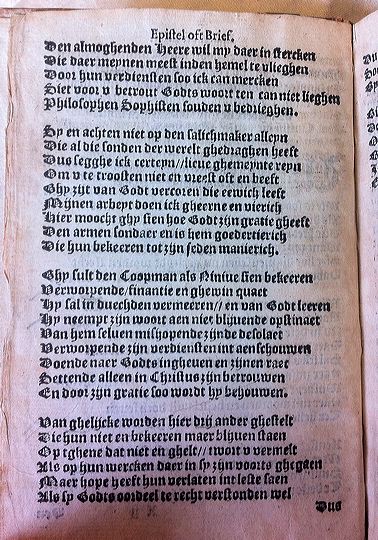 Epistel oft Brief.
Den almoghenden Heere wil my daer in stercken
Die daer meynen meest inden hemel te vlieghen
Door hun verdiensten soo ick can mercken
Siet voor v betrout Godts woort ten can niet lieghen
Philosophen Sophisten souden v bedrieghen.
Sy en achten niet op den salichmaker alleyn
Die al die sonden der werelt ghedraghen heeft
Dus segghe ick certeyn//lieue ghemeynte reyn
Om v te troosten niet en vreest oft en beeft
Ghy zijt van Godt vercoren die eewich leeft
Mijnen arbeyt doen ick gheerne en vierich
Hier moocht ghy sien hoe Godt zijn gratie gheeft
Den armen sondaer en is hem goedertierich
Die hun bekeeren tot zijn seden manierich.
Ghy sult den Coopman als Niniue sien bekeeren
Verworpende/finantie en ghewin quaet
Hy sal in duechden vermeeren// en van Godt leeren
Hy neempt zijn woort aen niet blijuende opstinaet
Van hem seluen mishopende zijnde desolaet
Verworpende zijn verdiensten int aenschouwen
Doende naer Godts ingheuen en zijnen raet
Settende alleen in Christus zijn betrouwen
En door zijn gratie soo wordt hy behouwen.
Van ghelijcke worden hier drij ander ghestelt
Die hun niet en bekeeren maer blijuen staen
Op tghene dat niet en ghelt// twort v vermelt
Als op hun wercken daer in sy zijn voorts ghegaen
Maer hope heeft hun verlaten int leste saen
Als sy Godts oordeel te recht verstonden wel
Dus